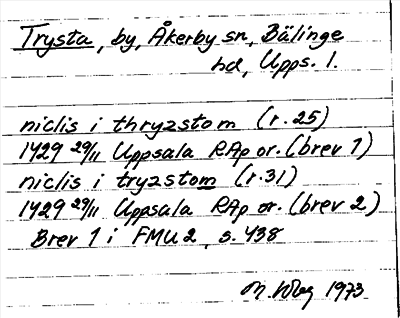 Trysta, by, Åkerby sn, Bälinge
hd, Upps. l.
niclis i thryzstom (r. 25)
1429 29/11 Uppsala RAp or. (brev 1)
niclis i tryzstom (r. 31)
1429 29/11 Uppsala RAp or. (brev 2)
Brev 1 i FMU 2, s. 438
1973